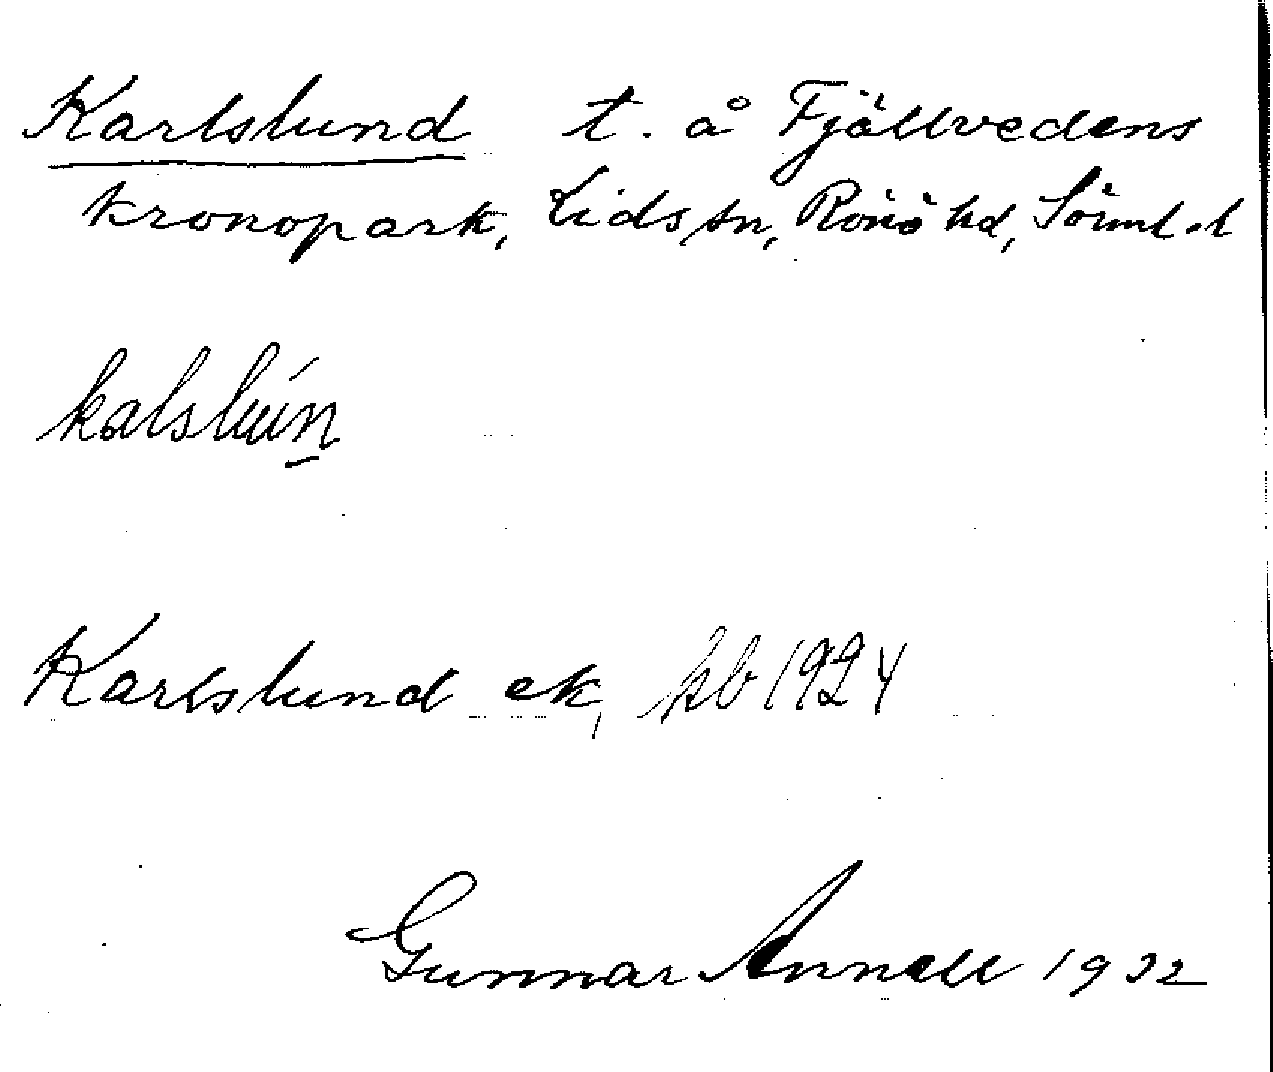 Karlslund t. å Fjällvedens
kronopark, Lids sn, Rönö hd, Sörml. l
kalslún
Karlslund ek, kb 1924
Gunnar Annell 1932